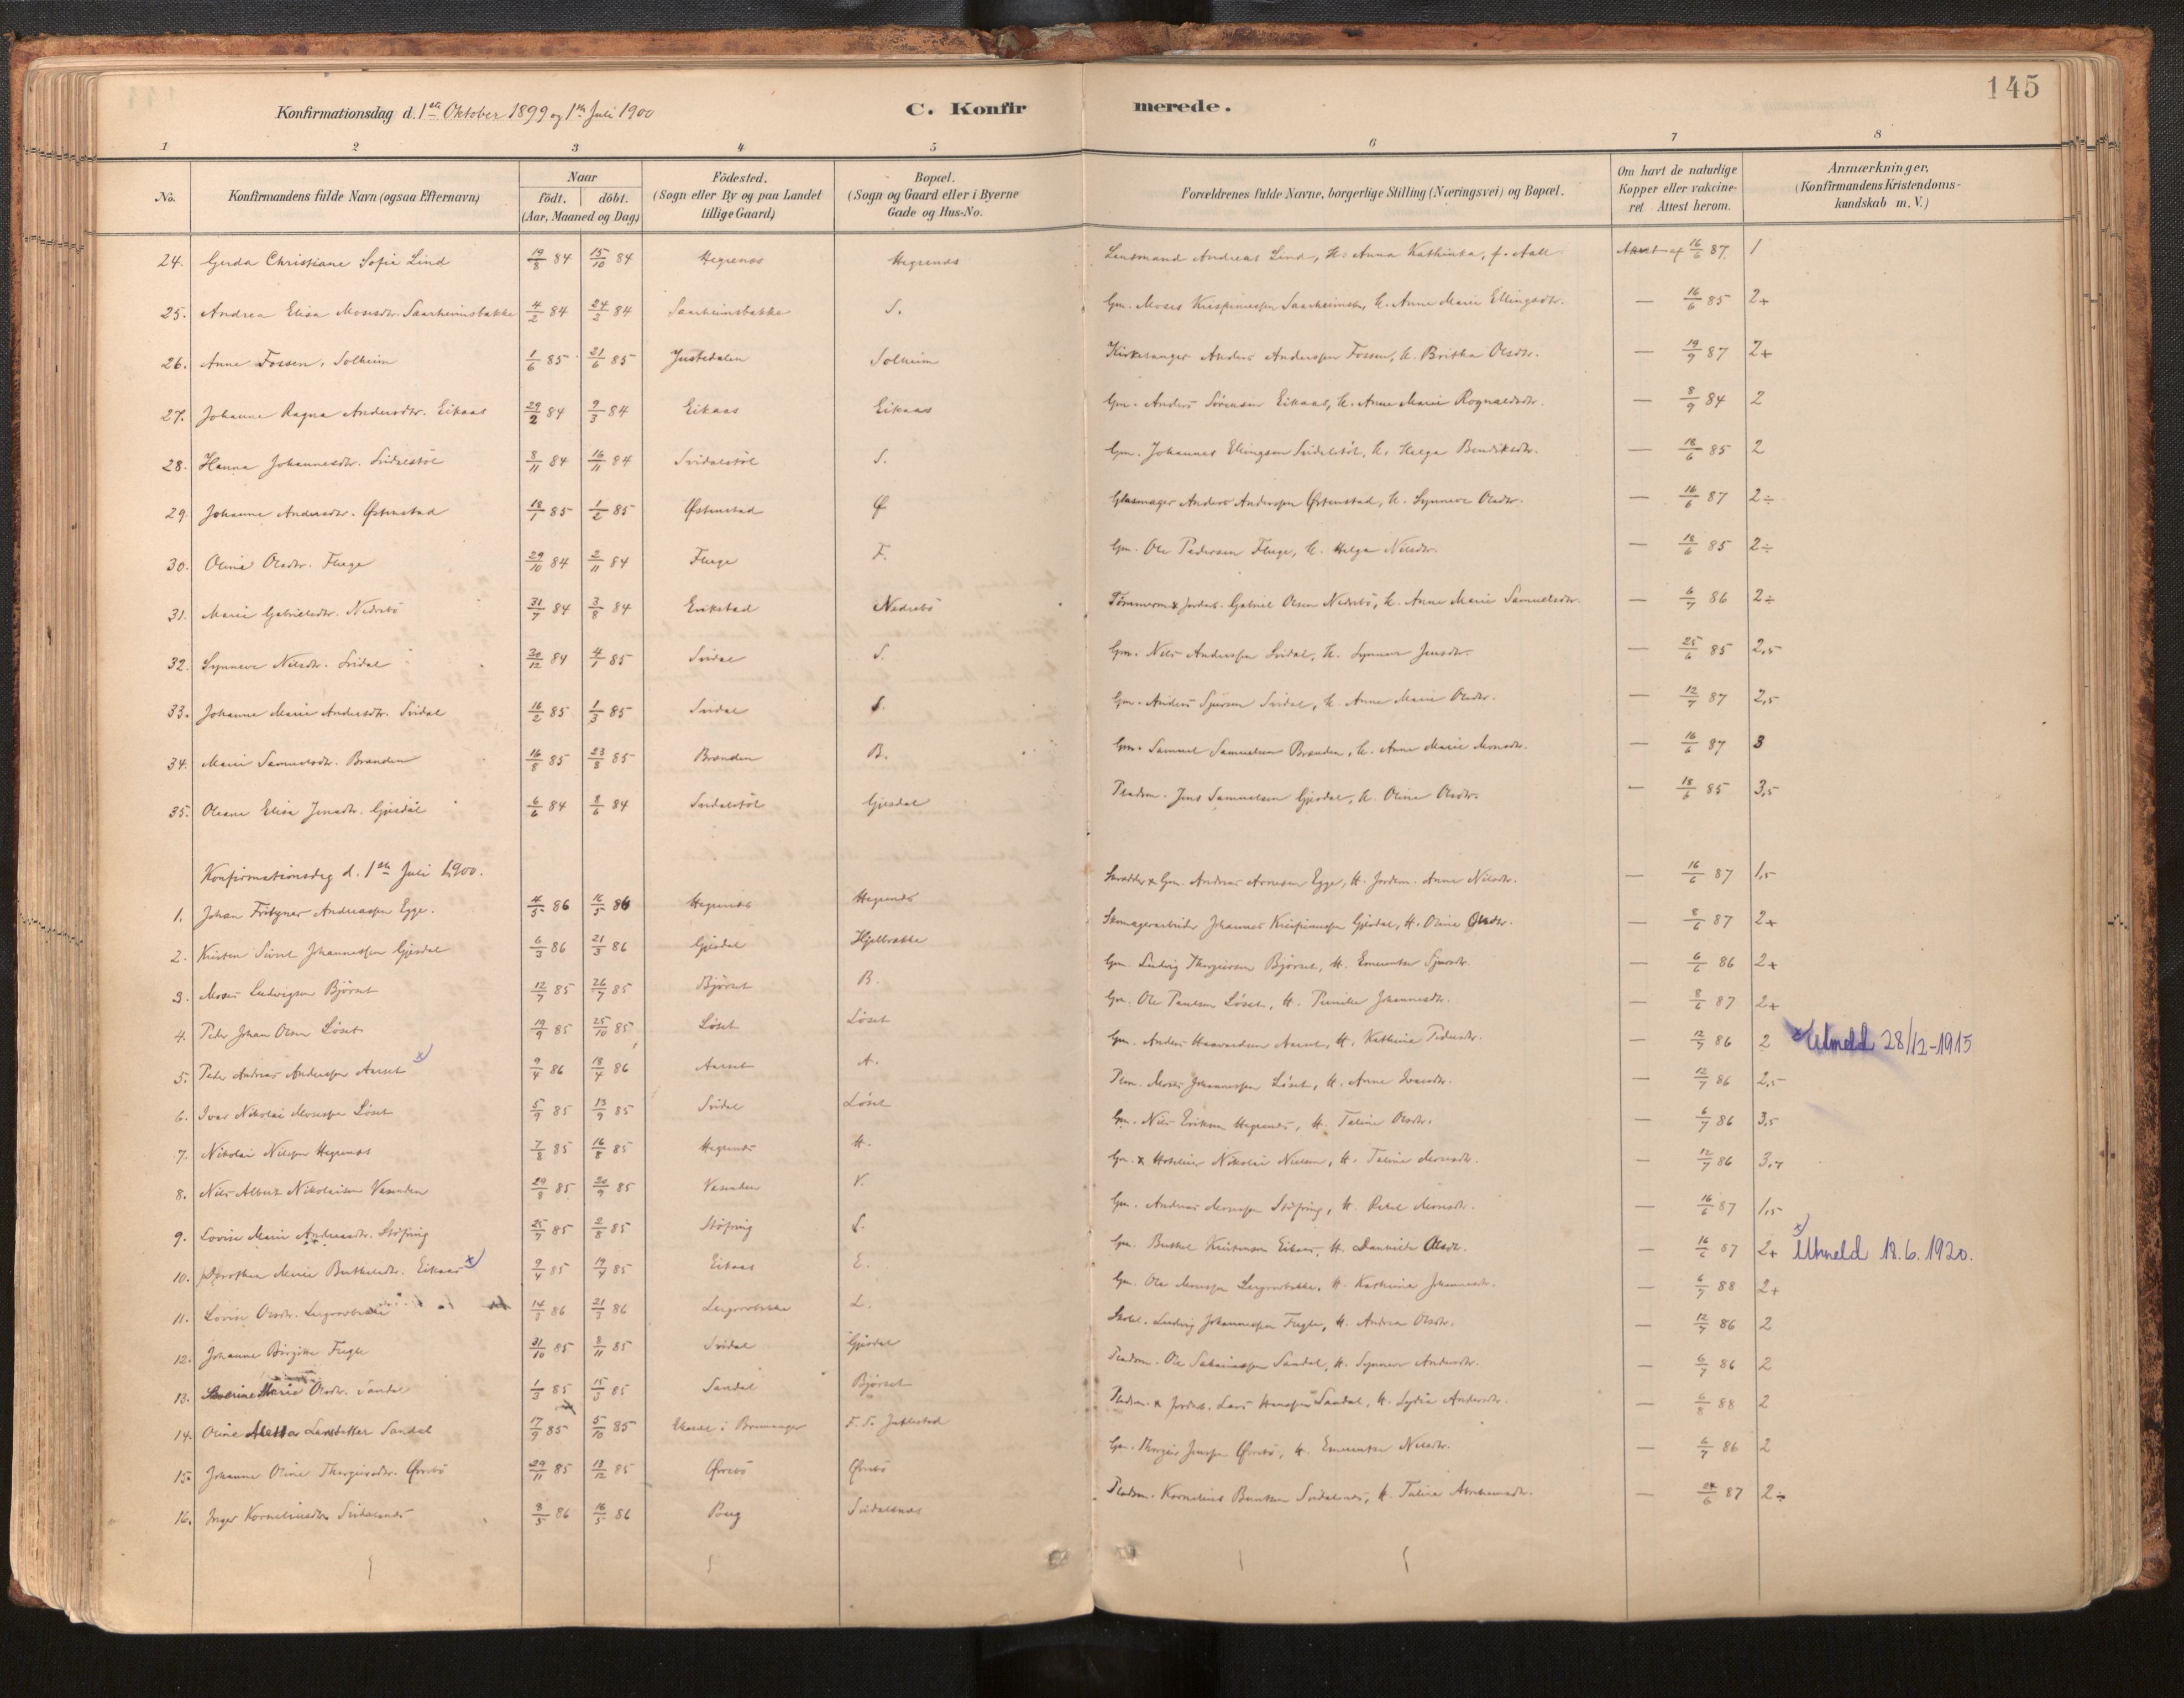 145
Konfirmationsdag d. 1ste Oktober 1899 og 1ste Juli 1900
C. Konfirmerede.
1 2 3 4 5 6 7 8
No. | Konfirmandens fulde Navn (ogsaa Efternavn) | Naar födt. döbt. (Aar, Maaned og Dag) | Födested. (Sogn eller By og paa Landet tillige Gaard) | Bopæl. (Sogn og Gaard eller i Byerne Gade og Hus-No. | Forældrenes fulde Navne, borgerlige Stilling (Næringsvei) og Bopæl. | Om havt de naturlige Kopper eller vaksineret. Attest herom. | Anmærkninger. (Konfirmandens Kristendomskundskab m. V.)
24. Gerda Christiane Sofie Lind 19/8 84 15/10 84 Hegrenæs Hegrenæs Lensmand Andreas Lind, H. Anna Kathinka, f. Aall Attest af 16/6 87 1
25. Andrea Elisa Mosesdtr. Saarheimsbakke 4/2 84 24/2 84 Saarheimsbakke S. Gm. Moses Krispinussen Saarheimsb., H. Anne Marie Ellingsdtr. — 16/6 85 2+
26. Anne Fossen, Solheim 1/6 85 21/6 85 Justedalen Solheim Kirkesanger Anders Anderssen Fossen, H. Britha Olsdtr. — 19/9 87 2+
27. Johanne Ragna Andersdtr. Eikaas 29/2 84 9/3 84 Eikaas Eikaas Gm. Anders Sørensen Eikaas, H. Anne Marie Rognaldsdtr. — 8/9 84 2
28. Hanna Johannesdtr. Svidalstöl 8/11 84 16/11 84 Svidalstöl S. Gm. Johannes Ellingsen Svidalstöl, H. Helga Bendiksdtr. — 18/6 85 2
29. Johanne Andersdtr. Østenstad 18/1 85 1/2 85 Østenstad Ø Glasmager Anders Anderssen Østenstad, H. Synneve Olsdtr. — 16/6 87 2÷
30. Oline Olsdtr. Fluge 29/10 84 2/11 84 Fluge F. Gm. Ole Pedersen Fluge, H. Helga Nilsdtr. — 18/6 85 2÷
31. Marie Gabrielsdtr. Nedrebö 31/7 84 3/8 84 Erikstad Nedrebö Tömmerm. & Jordb. Gabriel Olsen Nedrebö, H. Anne Marie Samuelsdtr. — 6/7 86 2÷
32. Synneve Nilsdtr. Svidal 30/12 84 4/1 85 Svidal S. Gm. Nils Anderssen Svidal, H. Synneve Jensdtr. — 25/6 85 2,5
33. Johanne Marie Andersdtr. Svidal 16/2 85 1/3 85 Svidal S. Gm. Anders Sjursen Svidal, H. Anne Marie Olsdtr. — 12/7 87 2,5
34. Marie Samuelsdtr. Brænden 16/8 85 23/8 85 Brænden B. Gm. Samuel Samuelsen Brænden, H. Anne Marie Monsdtr. — 16/6 87 3
35. Oleane Elisa Jensdtr. Gjesdal 6/6 84 8/6 84 Svidalstöl Gjesdal Pladsm. Jens Samuelsen Gjesdal, H. Oline Olsdtr. — 18/6 85 3,5
Konfirmationsdag d. 1ste Juli 1900.
1. Johan Frityner Andreassen Egge. 4/5 86 16/5 86 Hegrenæs Hegrenæs Skrædder & Gm. Andreas Arnesen Egge, H. Jordem. Anne Nilsdtr. — 16/6 87 1,5
2. Kristen Sivert Johannessen Gjesdal 6/3 86 21/3 86 Gjesdal Hjelbrekke Skomagerarbeider Johannes Krispinussen Gjesdal, H. Oline Olsdtr. — 8/6 87 2+
3. Moses Ludvigsen Björset 12/7 85 26/7 85 Björset B. Gm. Ludvig Thorgeirsen Björset, H. Emerentse Sjursdtr. — 6/6 86 2+
4. Peder Johan Olsen Löset 19/9 85 25/10 85 Löset Löset Gm. Ole Paulsen Löset, H. Pernille Johannesdtr. — 8/6 87 2+
5. Peder Andreas Anderssen Aarset x) 9/4 86 18/4 86 Aarset A. Gm. Anders Haavardsen Aarset, H. Kathrine Pedersdtr. — 12/7 86 2 x) Utmeld 28/12-1915
6. Ivar Nikolai Mosessen Löset 5/9 85 13/9 85 Svidal Löset Plm. Moses Johannessen Löset, H. Anne Ivarsdtr. — 12/7 86 2,5
7. Nikolai Nilssen Hegrenæs 7/8 85 16/8 85 Hegrenæs H. Gm. Nils Eriksen Hegrenæs, H. Taline Olsdtr. — 6/7 86 3,5
8. Nils Albert Nikolaisen Vasenden 29/8 85 20/9 85 Vasenden V. Gm. & Hotelier Nikolai Nielsen, H. Taline Monsdtr. — 12/7 86
9. Lovise Marie Andreasdtr. Stöfring 25/7 85 2/8 85 Stöfring S. Gm. Andreas Monssen Stöfring, H. Rakel Monsdtr. — 16/6 87 1,5
10. Dorothea Marie Berthelsdtr. Eikaas x) 9/4 85 19/4 85 Eikaas E. Gm. Berthel Kristensen Eikaas, H. Danielle Olsdtr. — 16/6 87 2+ x) Utmeld 18.6.1920.
11. Lovise Olsdtr. Legrovbakke 14/3 86 21/3 86 Legrovbakke L. Gm. Ole Monssen Legrovbakke, H. Kathrine Johannesdtr. — 6/7 88 2+
12. Johanne Birgitte Fugle 31/10 85 8/11 85 Svidal Gjesdal Skolel. Ludvig Johannessen Fugle, H. Andrea Olsdtr. — 12/7 86 2
13. Severine Marie Olsdtr. Sandal 1/3 85 15/3 85 Sandal Björset Pladsm. Ole Sakariassen Sandal, H. Synneve Andersdtr. — 6/7 86 2
14. Oline Aletta Larsdatter Sandal 17/9 85 5/10 85 i Bremanger Pladsm. & Jordarb. Lars Hanssen Sandal, H. Lydia Andersdtr. — 6/8 88 2
15. Johanne Oline Thorgeirsdtr. Övrebö 29/11 85 13/12 85 Övrebö Övrebö Gm. Thorgeir Jenssen Övrebö, H. Emerentse Nilsdtr. — 6/7 86 2
16. Inger Korneliusdtr. Svidalsnæs 8/5 86 16/5 86 Svidalsnæs Pladsm. Kornelius Bentsen Svidalsnæs, H. Taline Abrahamsdtr. — 87 2÷